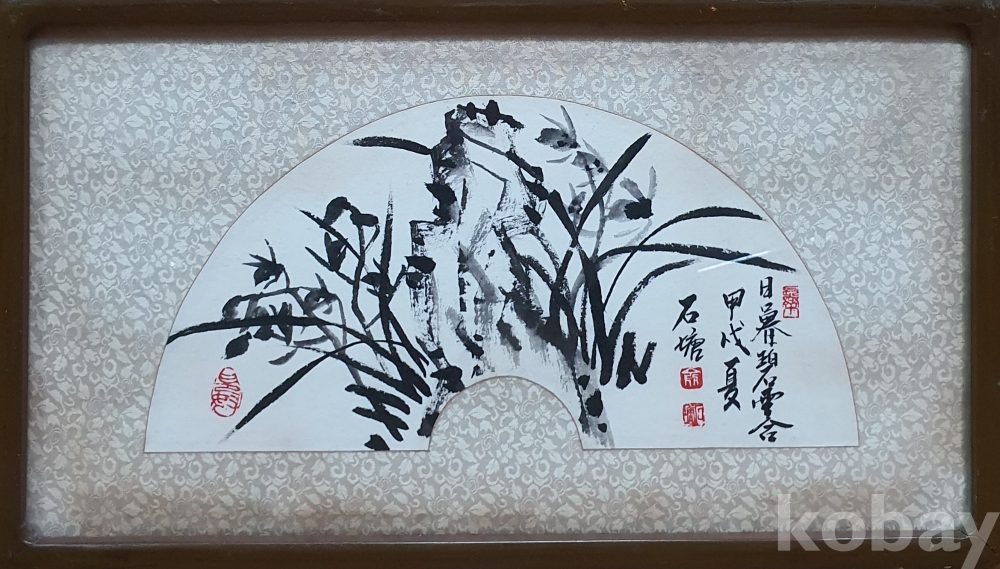 日暮碧雲合
甲戌夏
石塘
kobay